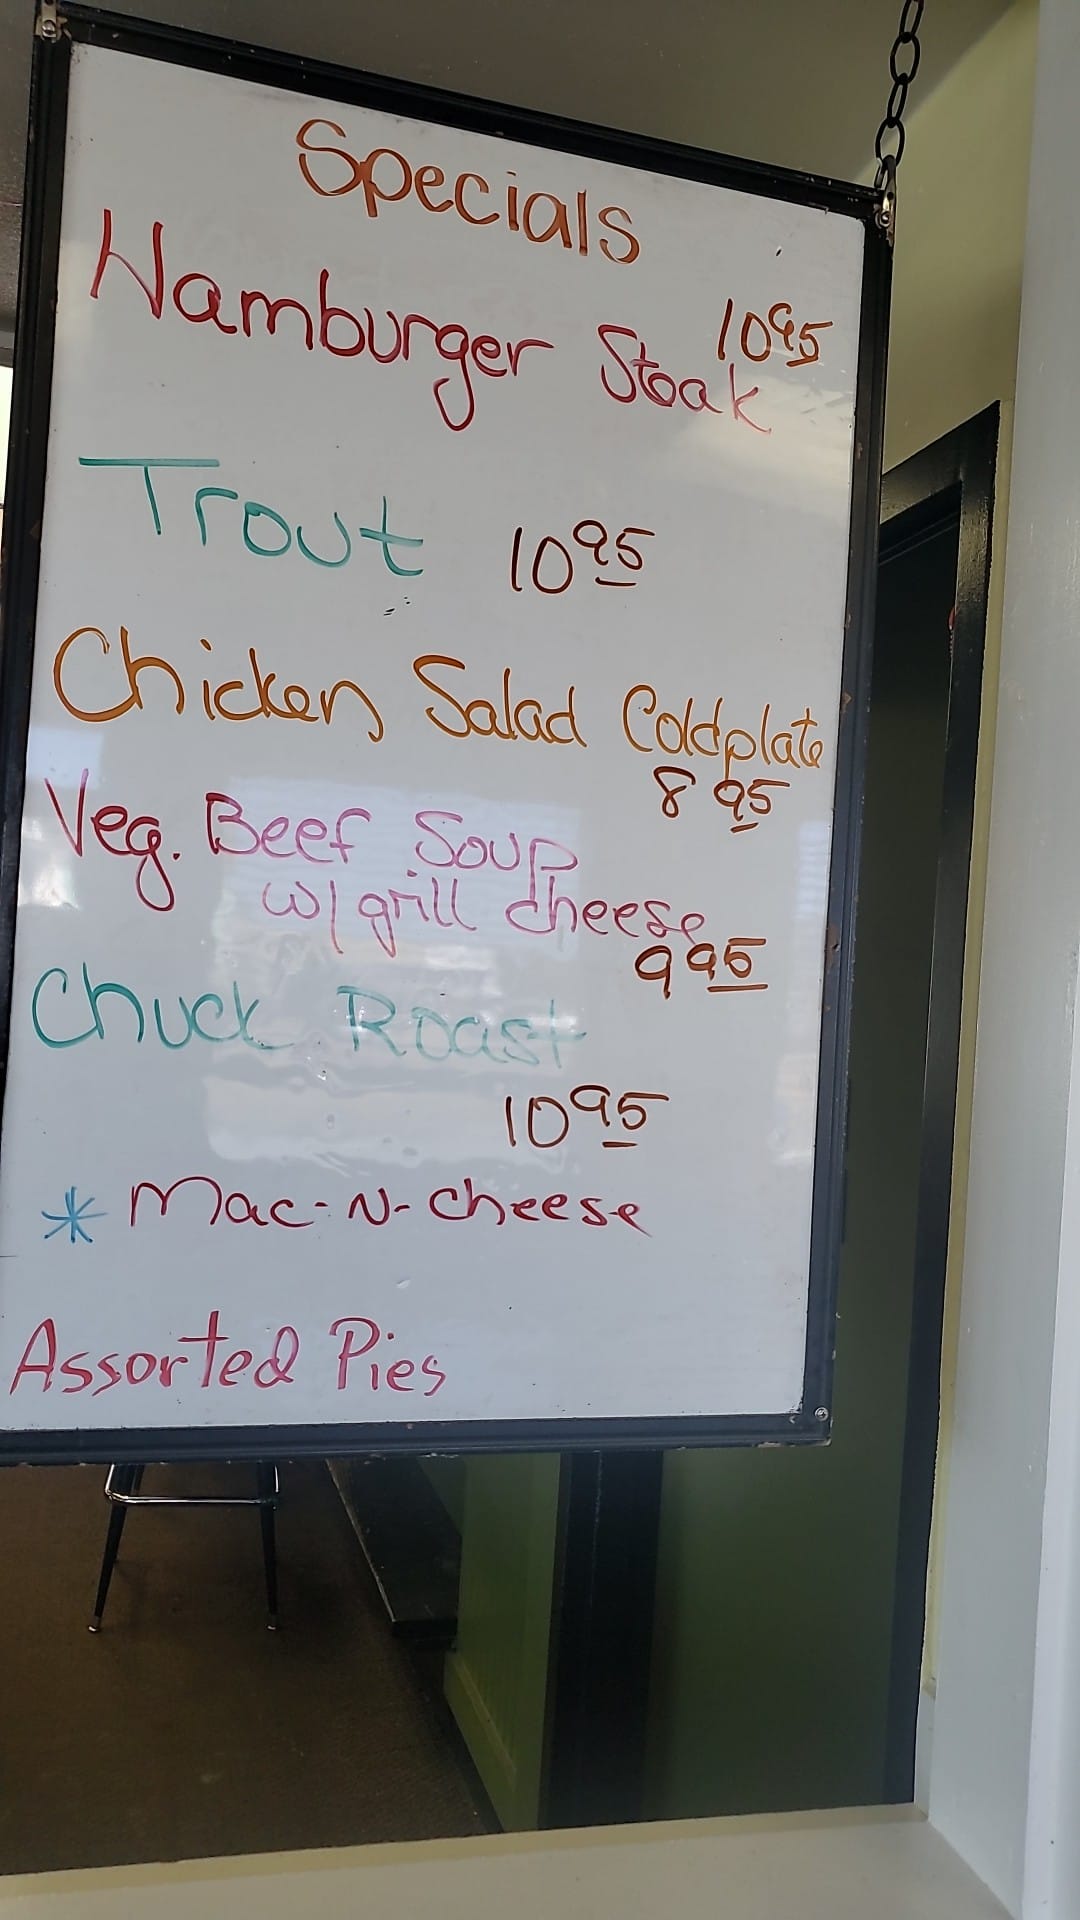 Specials
Hamburger Steak 10 95
Trout 10 95
Chicken Salad Coldplate
8 95
Veg. Beef Soup
w/ grill cheese
9 95
Chuck Roast
10 95
* Mac-N-cheese
Assorted Pies